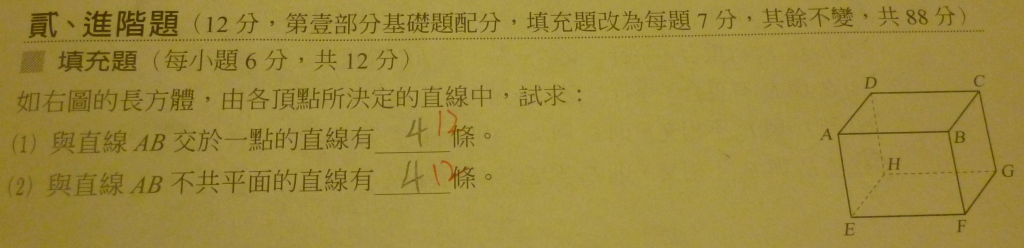 貳、進階題（12 分，第壹部分基礎題配分，填充題改為每題 7 分，其餘不變，共 88 分）
填充題（每小題 6 分，共 12 分）
如右圖的長方體，由各頂點所決定的直線中，試求：
(1) 與直線 AB 交於一點的直線有 4 12 條。
(2) 與直線 AB 不共平面的直線有 4 12 條。
D C
A B
H G
E F